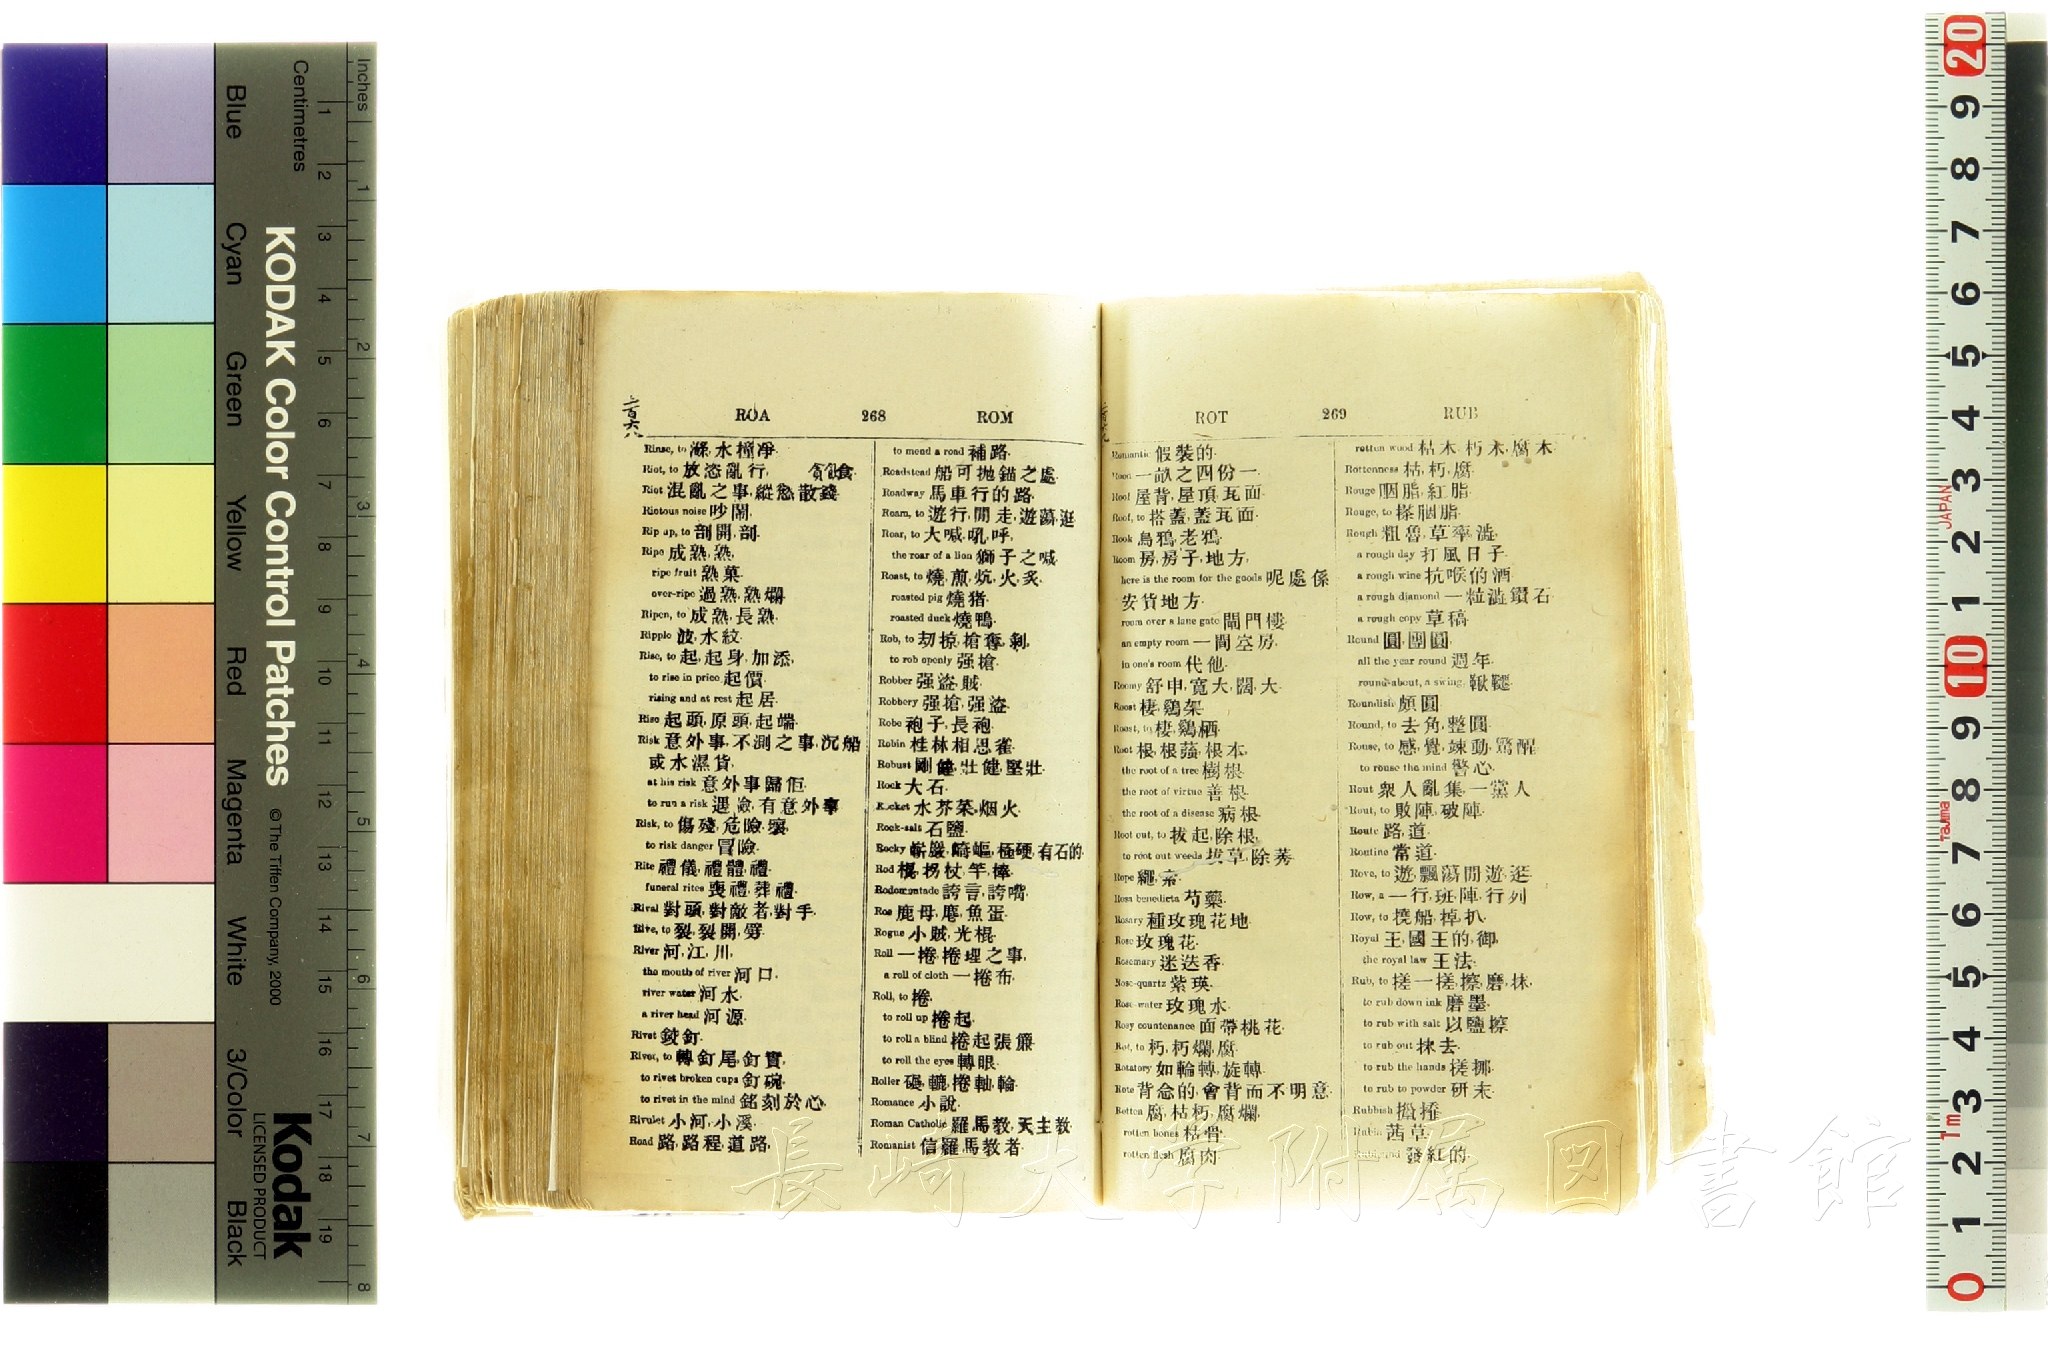 Inches
Centimetres
KODAK Color Control Patches
© The Tiffen Company, 2000
Kodak
LICENSED PRODUCT
Blue
Cyan
Green
Yellow
Red
Magenta
White
3/Color
Black
二百六八
ROA 268 ROM
Rinse, to 滌,水撞凈.
Riot, to 放恣亂行, 貪飲食.
Riot 混亂之事,縱慾散錢
Riotous noise 吵鬧.
Rip up, to 剖開,剖.
Ripe 成熟,熟,
ripe fruit 熟菓.
over-ripe 過熟,熟爛
Ripen, to 成熟,長熟.
Ripple 波,水紋.
Rise, to 起,起身,加添,
to rise in price 起價.
rising and at rest 起居.
Rise 起頭,原頭,起端.
Risk 意外事,不測之事,沉船
或水濕貨,
at his risk 意外事歸佢.
to run a risk 遇險,有意外事
Risk, to 傷殘,危險,壞,
to risk danger 冒險.
Rite 禮儀,禮體,禮.
funeral rites 喪禮,葬禮.
Rival 對頭,對敵者,對手.
Rive, to 裂,裂開,劈.
River 河,江,川,
the mouth of river 河口.
river water 河水.
a river head 河源.
Rivet 鉸釘.
Rivet, to 轉釘尾,釘實,
to rivet broken cups 釘碗.
to rivet in the mind 銘刻於心.
Rivulet 小河,小溪.
Road 路,路程,道路.
to mend a road 補路.
Roadstead 船可抛錨之處.
Roadway 馬車行的路.
Roam, to 遊行,閒走,遊蕩,逛
Roar, to 大喊,吼,呼,
the roar of a lion 獅子之喊
Roast, to 燒,煎,炕,火,炙.
roasted pig 燒猪.
roasted duck 燒鴨.
Rob, to 刧掠,搶奪,剝,
to rob openly 强搶.
Robber 强盜,賊.
Robbery 强搶,强盜.
Robe 袍子,長袍.
Robin 桂林相思雀.
Robust 剛健,壯健,堅壯.
Rock 大石.
Rocket 水芥菜,烟火.
Rock-salt 石鹽.
Rocky 嶄巖,崎嶇,極硬,有石的.
Rod 棍,拐杖,竿,棒.
Rodomontade 誇言,誇嘴.
Roe 鹿母,麀,魚蛋.
Rogue 小賊,光棍.
Roll 一捲,捲埋之事,
a roll of cloth 一捲布.
Roll, to 捲,
to roll up 捲起.
to roll a blind 捲起張簾.
to roll the eyes 轉眼.
Roller 碾,轆,捲軸,輪.
Romance 小說.
Roman Catholic 羅馬教,天主教.
Romanist 信羅馬教者.
ROT 269 RUB
Romantic 假裝的.
Rood 一畝之四份一.
Roof 屋背,屋頂,瓦面.
Roof, to 搭蓋,蓋瓦面.
Rook 烏鴉,老鴉.
Room 房,房子,地方,
here is the room for the goods 呢處係
安貨地方.
room over a lane gate 閘門樓.
an empty room 一間空房.
in one's room 代他.
Roomy 舒申,寬大,闊,大.
Roost 棲,鷄架.
Roost, to 棲,鷄栖.
Root 根,根蔃,根本,
the root of a tree 樹根.
the root of virtue 善根.
the root of a disease 病根.
Root out, to 拔起,除根,
to root out weeds 拔草,除莠.
Rope 繩,索.
Rosa benedicta 芍藥.
Rosary 種玫瑰花地.
Rose 玫瑰花.
Rosemary 迷迭香.
Rose-quartz 紫瑛.
Rose-water 玫瑰水.
Rosy countenance 面帶桃花.
Rot, to 朽,朽爛,腐.
Rotatory 如輪轉,旋轉.
Rote 背念的,會背而不明意.
Rotten 腐,枯朽,腐爛,
rotten bones 枯骨.
rotten flesh 腐肉.
rotten wood 枯木,朽木,腐木
Rottenness 枯,朽,腐.
Rouge 胭脂,紅脂.
Rouge, to 搽胭脂.
Rough 粗魯,草率,澁,
a rough day 打風日子.
a rough wine 抗喉的酒.
a rough diamond 一粒澁鑽石
a rough copy 草稿.
Round 圓,團圓.
all the year round 週年.
round-about, a swing, 鞦韆.
Roundish 頗圓
Round, to 去角,整圓.
Rouse, to 感,覺,竦動,驚醒
to rouse the mind 警心.
Rout 衆人亂集,一黨人
Rout, to 敗陣,破陣.
Route 路,道.
Routine 常道.
Rove, to 遊,飄蕩,閒遊,逛.
Row, a 一行,班,陣,行列
Row, to 撓船,棹,扒.
Royal 王,國王的,御,
the royal law 王法.
Rub, to 搓一搓,擦,磨,抹,
to rub down ink 磨墨.
to rub with salt 以鹽擦
to rub out 抹去.
to rub the hands 搓挪.
to rub to powder 研末.
Rubbish
Rubia 茜草.
發紅的.
長崎大学附属図書館
JAPAN
Tajima
1m